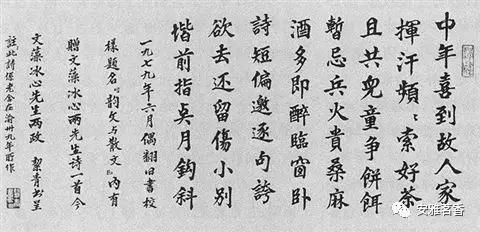 中年喜到故人家
揮汗頻〻索好茶
且共兒童争餅餌
暫忘兵火貴桑麻
酒多即醉臨窗卧
詩短偏邀逐句誇
欲去还留傷小别
堦前指奌月鈎斜
一九七九年六月偶翻旧書校
樣題名〝韵文与散文〞内有
贈文藻冰心两先生詩一首今
文藻冰心先生两政 絜青書呈
註此詩係老舍在渝卅九年所作
安雅茗香